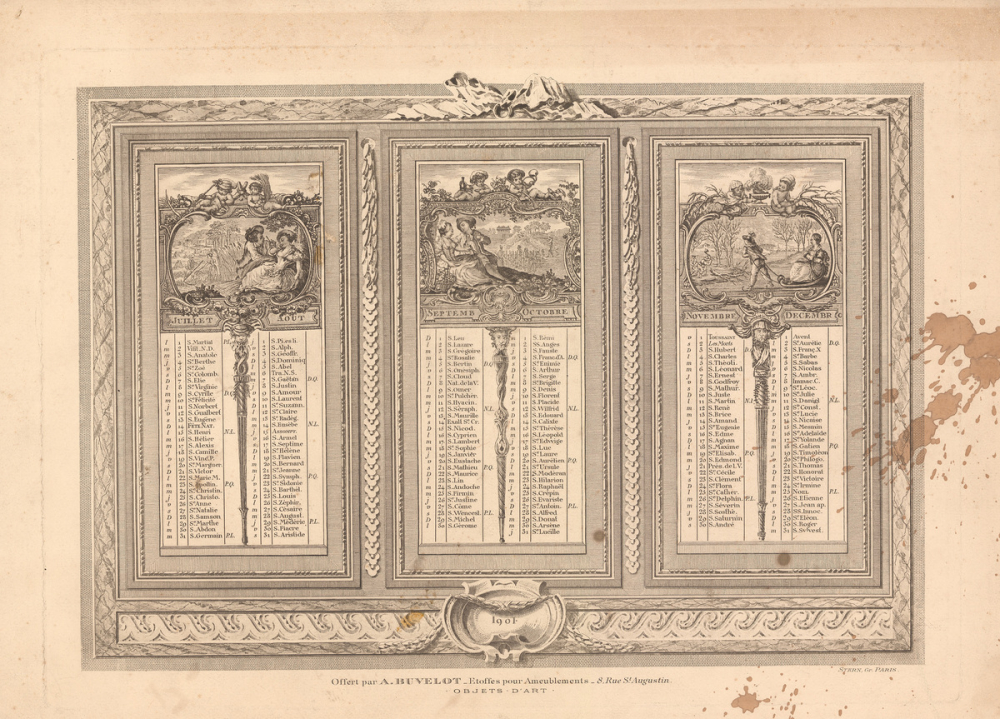 JUILLET AOUT
SEPTEMB OCTOBRE
NOVEMBRE DECEMBR
l 1 S.Martial
m 2 Visit.N.D.
m 3 S.Anatole
j 4 Ste Berthe
v 5 Ste Zoé
s 6 Ste Colomb.
D 7 S.Elie
l 8 Ste Virginie
m 9 S.Cyrille D.Q.
m 10 Ste Félicité
j 11 S.Norbert
v 12 S.Gualbert
s 13 S.Eugène
D 14 Fête Nat.
l 15 S.Henri N.L.
m 16 S.Hélier
m 17 S.Alexis
j 18 S.Camille
v 19 S.Vinc.P.
s 20 Ste Marguer.
D 21 S.Victor
l 22 Ste Marie M.
m 23 S. P.Q.
m 24 Ste Christin.
j 25 S.Christo.
v 26 Ste Anne
s 27 Ste Natalie
D 28 S.Samson
l 29 Ste Marthe
m 30 S.Abdon
m 31 S.Germain P.L.
j 1 S.P.ès-li
v 2 S.Alph.
s 3 S.Geoffr.
D 4 S.Dominiq
l 5 S.Abel
m 6 Tra.N.S.
m 7 S.Gaëtan D.Q.
j 8 S.Justin
v 9 S.Amour
s 10 S.Laurent
D 11 Ste Suzann.
l 12 Ste Claire
m 13 Ste Radég.
m 14 S.Eusèbe N.L.
j 15 Assomp.
v 16 S.Arnel
s 17 S.Septime
D 18 Ste Hélène
l 19 S.Flavien
m 20 S.Bernard
m 21 Ste Jeanne
j 22 S.Symph. P.Q.
v 23 Ste Sidonie
s 24 S.Barthél.
D 25 S.Louis
l 26 S.Zéphir.
m 27 S.Césaire
m 28 S.August.
j 29 S.Médéric P.L.
v 30 S.Fiacre
s 31 S.Aristide
D 1 S.Leu
l 2 S.Lazare
m 3 S.Grégoire
m 4 Ste Rosalie
j 5 S.Bertin D.Q.
v 6 S.Onésiph.
s 7 S.Cloud
D 8 Nat. de la V.
l 9 S.Omer
m 10 Ste Pulchér.
m 11 S.Hyacin.
j 12 S.Séraph. N.L.
v 13 S.Maurille
s 14 Exalt Ste Cr.
D 15 S.Nicod.
l 16 S.Cyprien
m 17 S.Lambert
m 18 Ste Sophie
j 19 S.Janvier
v 20 S.Eustache
s 21 S.Mathieu P.Q.
D 22 S.Maurice
l 23 S.Lin
m 24 S.Andoche
m 25 S.Firmin
j 26 Ste Justine
v 27 S.Côme
s 28 S.Vencesl. P.L.
D 29 S.Michel
l 30 S.Gérome
m 1 S.Rémi
m 2 SS.Anges
j 3 S.Fauste
v 4 S.Franc.d'A. D.Q.
s 5 Ste Enimie
D 6 S.Arthur
l 7 S.Serge
m 8 Ste Brigitte
m 9 S.Denis
j 10 S.Florent
v 11 S.Placide
s 12 S.Wilfrid N.L.
D 13 S.Edouard
l 14 S.Caliste
m 15 Ste Thérèse
m 16 S.Léopold
j 17 Ste Edwige
v 18 S.Luc
s 19 Ste Laure
D 20 S.Aurélien P.Q.
l 21 Ste Ursule
m 22 S.Modéran
m 23 S.Hilarion
j 24 S.Raphaël
v 25 S.Crépin
s 26 S.Evariste
D 27 Ste Antoin. P.L.
l 28 S.Alfred
m 29 S.Donat
m 30 S.Arsène
j 31 Ste Lucille
v 1 Toussaint
s 2 Les Morts
D 3 S.Hubert D.Q.
l 4 S.Charles
m 5 S.Théoti.
m 6 S.Léonard
j 7 S.Ernest
v 8 S.Godfroy
s 9 S.Mathur.
D 10 S.Juste
l 11 S.Martin N.L.
m 12 S.René
m 13 S.Brice
j 14 S.Amand
v 15 Ste Eugénie
s 16 S.Edme
D 17 S.Agnan
l 18 S.Maxime
m 19 Ste Elisab. P.Q.
m 20 S.Edmond
j 21 Prés.de l.V.
v 22 Ste Cécile
s 23 S.Clément
D 24 Ste Flora
l 25 Ste Cather.
m 26 Ste Delphin. P.L.
m 27 S.Séverin
j 28 S.Sosthè.
v 29 S.Saturnin
s 30 S.André
D 1 Avent
l 2 Ste Aurélie D.Q.
m 3 S.Franç.X
m 4 Ste Barbe
j 5 S.Sabas
v 6 S.Nicolas
s 7 S.Ambr.
D 8 Immac.C.
l 9 Ste Léoc.
m 10 Ste Julie
m 11 S.Danièl N.L.
j 12 Ste Const.
v 13 Ste Lucie
s 14 S.Nicaise
D 15 S.Mesmin
l 16 Ste Adelaïde
m 17 Ste Yolande
m 18 S.Gatien P.Q.
j 19 S.Timoléon
v 20 Ste Philogo.
s 21 S.Thomas
D 22 S.Honorat
l 23 Ste Victoire
m 24 Ste Irmine
m 25 Noël P.L.
j 26 S.Etienne
v 27 S.Jean ap.
s 28 SS.Innoc.
D 29 Ste Eléon.
l 30 S.Roger
m 31 S.Sylvest.
1901
STERN, Gr. PARIS.
Offert par A. BUVELOT _ Etoffes pour Ameublements _ 8, Rue St Augustin.
· OBJETS · D'ART ·